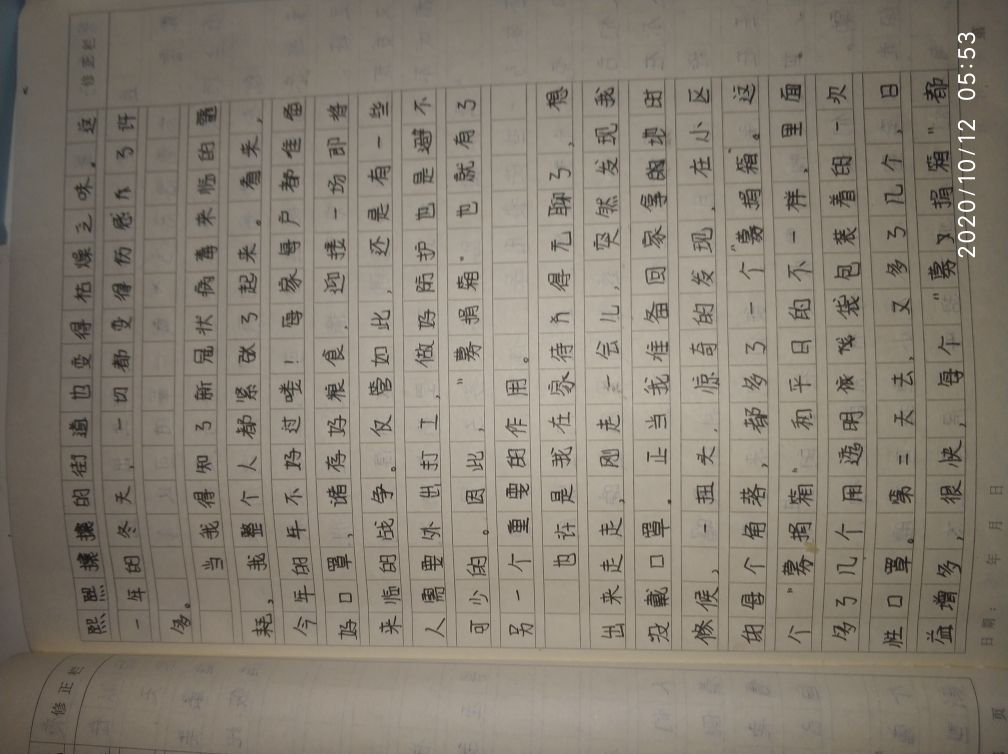 熙熙攘攘的街道也变得枯燥乏味。这
一年的冬天,一切都变得伤感了许
多。
当我得知了新冠状病毒来临的噩
耗,我整个人都紧张了起来。看来,
今年的年不好过喽!每家每户都准备
好口罩,储存好粮食,迎接一场即将
来临的战争。仅管如此,还是有一些
人需要外出打工,做好防护也是避不
可少的。因此,“募捐箱”也就有了
另一个重要的作用。
也许是我在家待得无聊了,想
出来走走,刚走一会儿,突然发现我
没戴口罩。正当我准备回家拿的
候,一扭头,惊奇的发现,在小区
的每个角落,都多了一个“募捐箱”。这
个“募捐箱”和平日的不一样,里面
多了几个用透明袋包装着的一次
性口罩。第二天去,又多了几个,日
益增多,很快,每个“募捐箱”都
日期: 年 月 日
修正栏
修正栏
页
2020/10/12 05:53